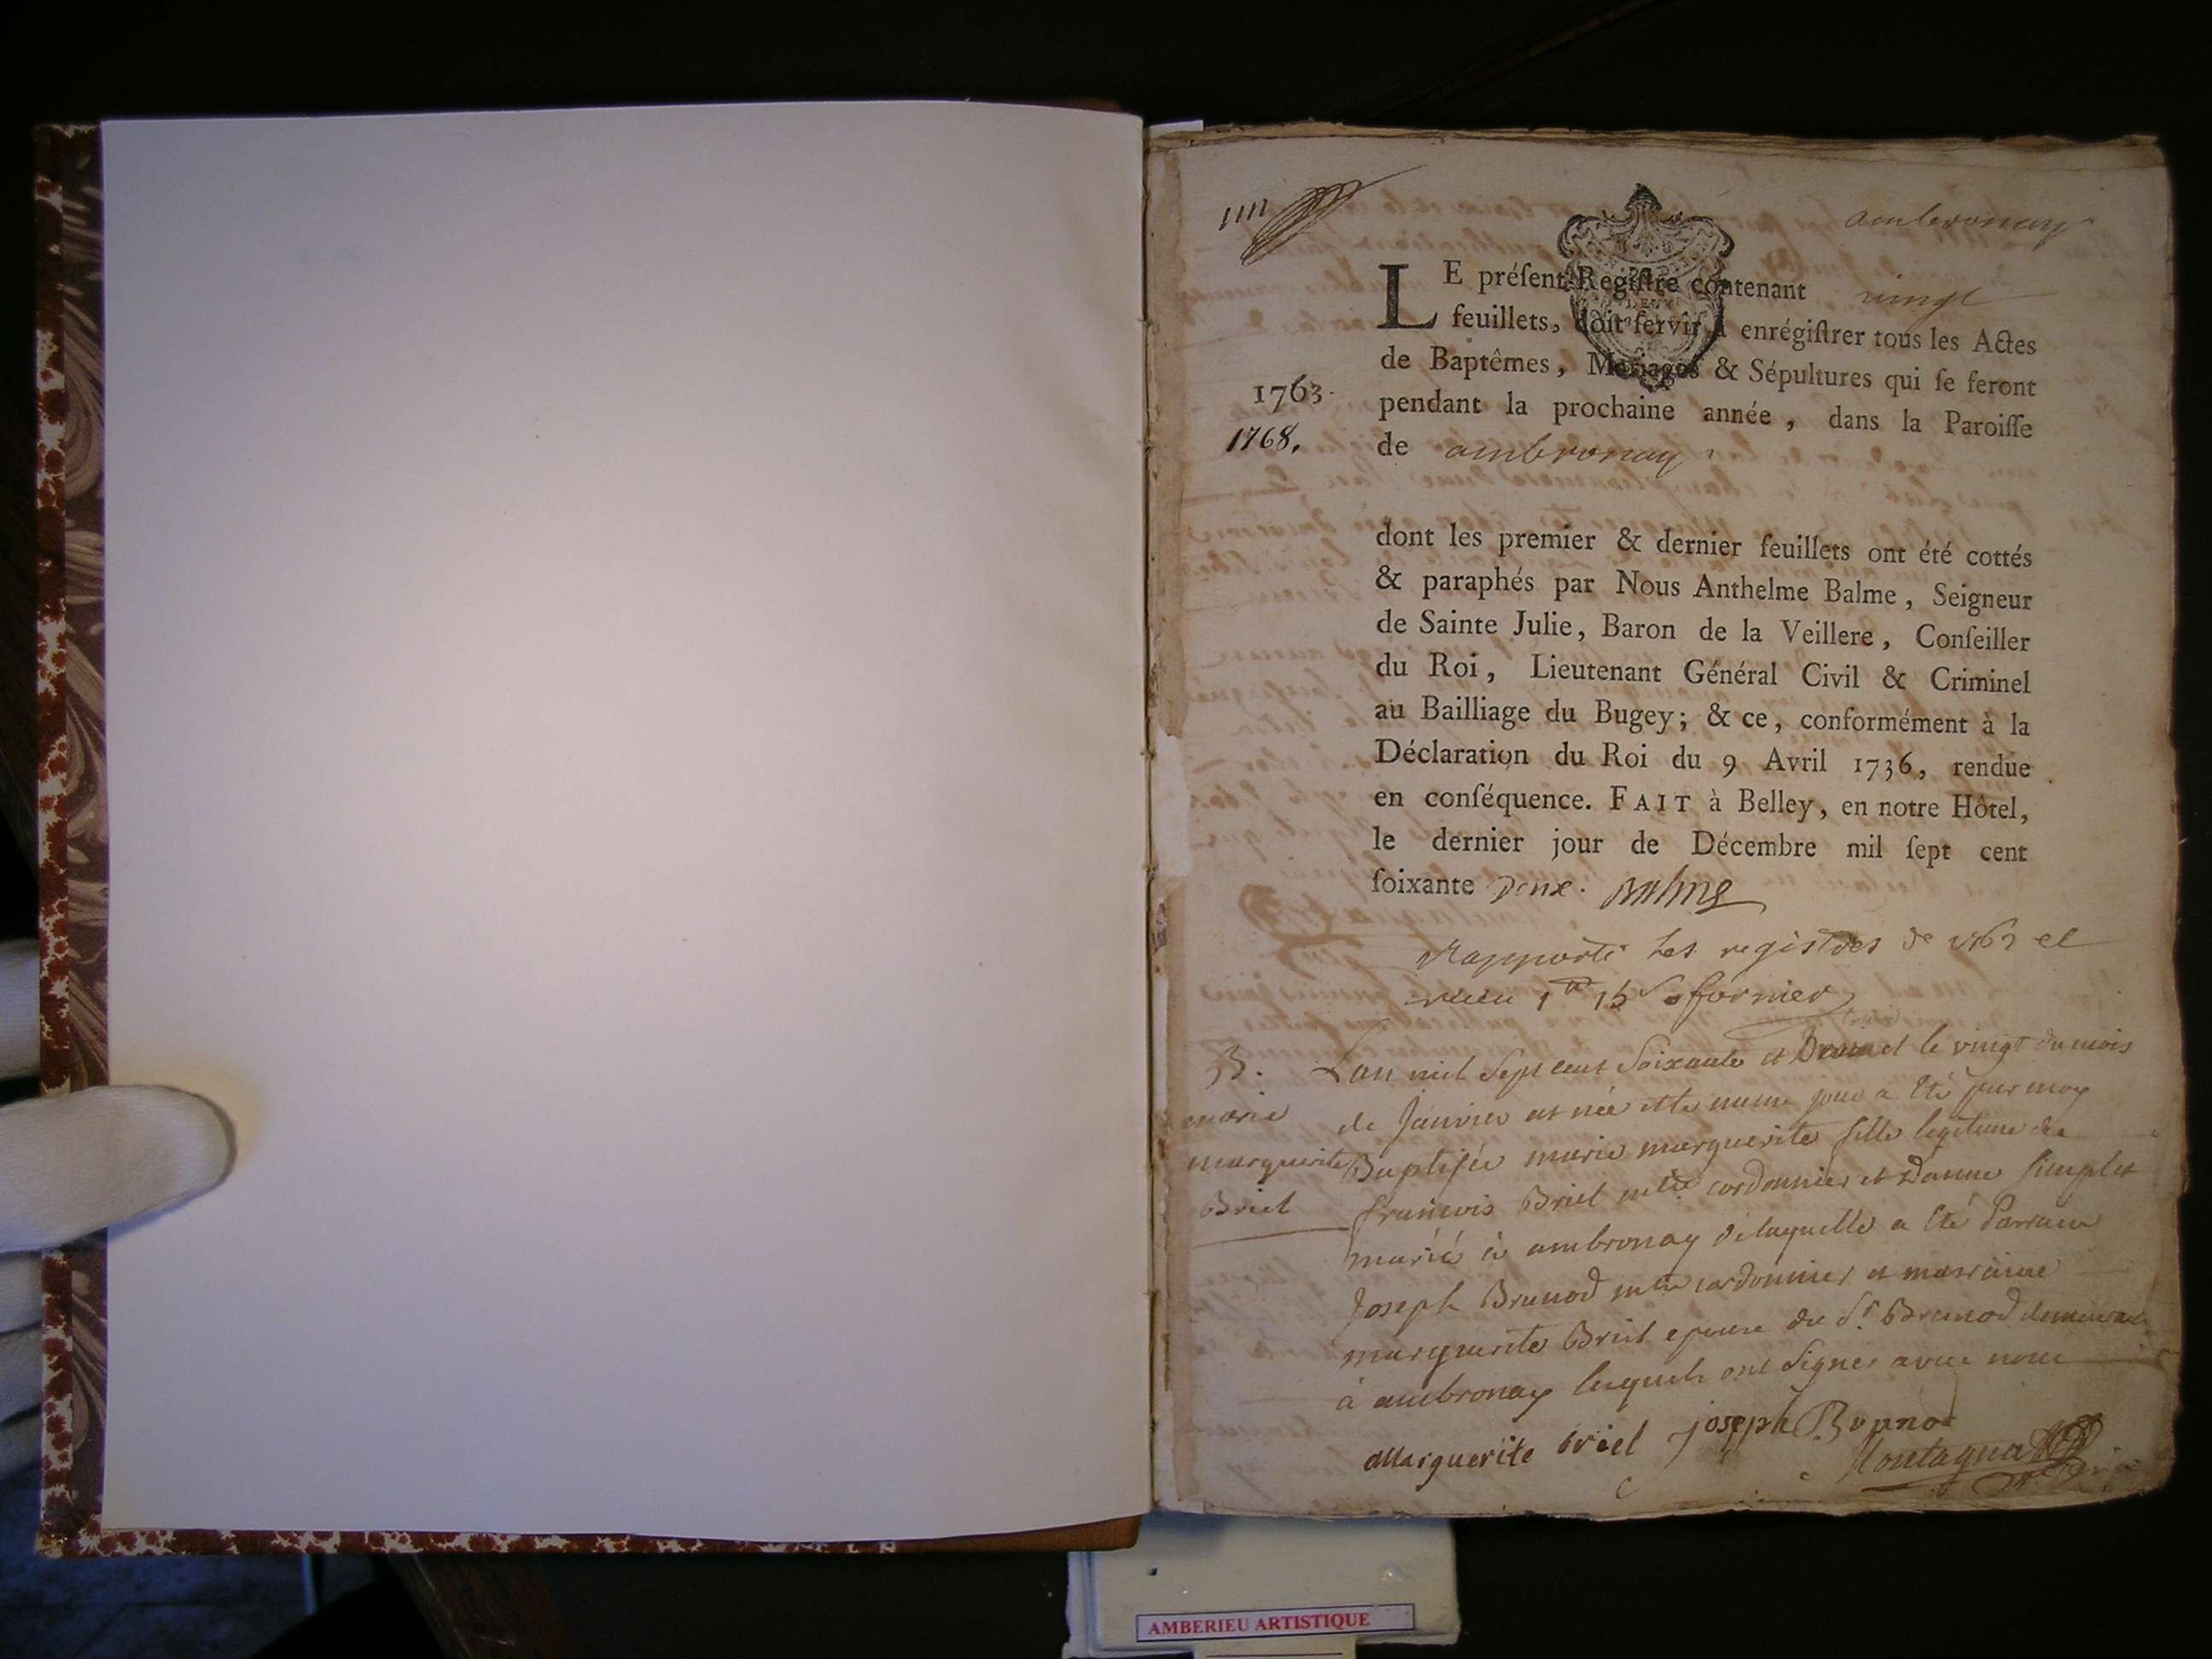 ambronay
LE préſent Regiſtre contenant vingt
feuillets, doit ſervir à enrégiſtrer tous les Actes
de Baptêmes, Mariages & Sépultures qui ſe feront
1763.
pendant la prochaine année, dans la Paroiſſe
1768.
de ambronay
dont les premier & dernier feuillets ont été cottés
& paraphés par Nous Anthelme Balme, Seigneur
de Sainte Julie, Baron de la Veillere, Conſeiller
du Roi, Lieutenant Général Civil & Criminel
au Bailliage du Bugey; & ce, conformément à la
Déclaration du Roi du 9 Avril 1736, rendue
en conſéquence. FAIT à Belley, en notre Hôtel,
le dernier jour de Décembre mil ſept cent
ſoixante Deux. Balme
Rapporté les registres de 1762 et
B.
Lan mil Sept cent Soixante et le vingt du mois
marie
de Janvier est née et le meme jour a été par moy
marguerite
Baptisée marie marguerite fille legitime de
Briel
francois Briel mtre cordonnier et Danne simplet
mariés à ambronay de laquelle a été Parrain
Joseph Brunod mtre cordonnier et marraine
marguerite Briel epouse du Sr Brunod demeurant
à ambronay lesquels ont signes avec nous
Marguerite briel joseph Brunod
Montagnat
AMBERIEU ARTISTIQUE